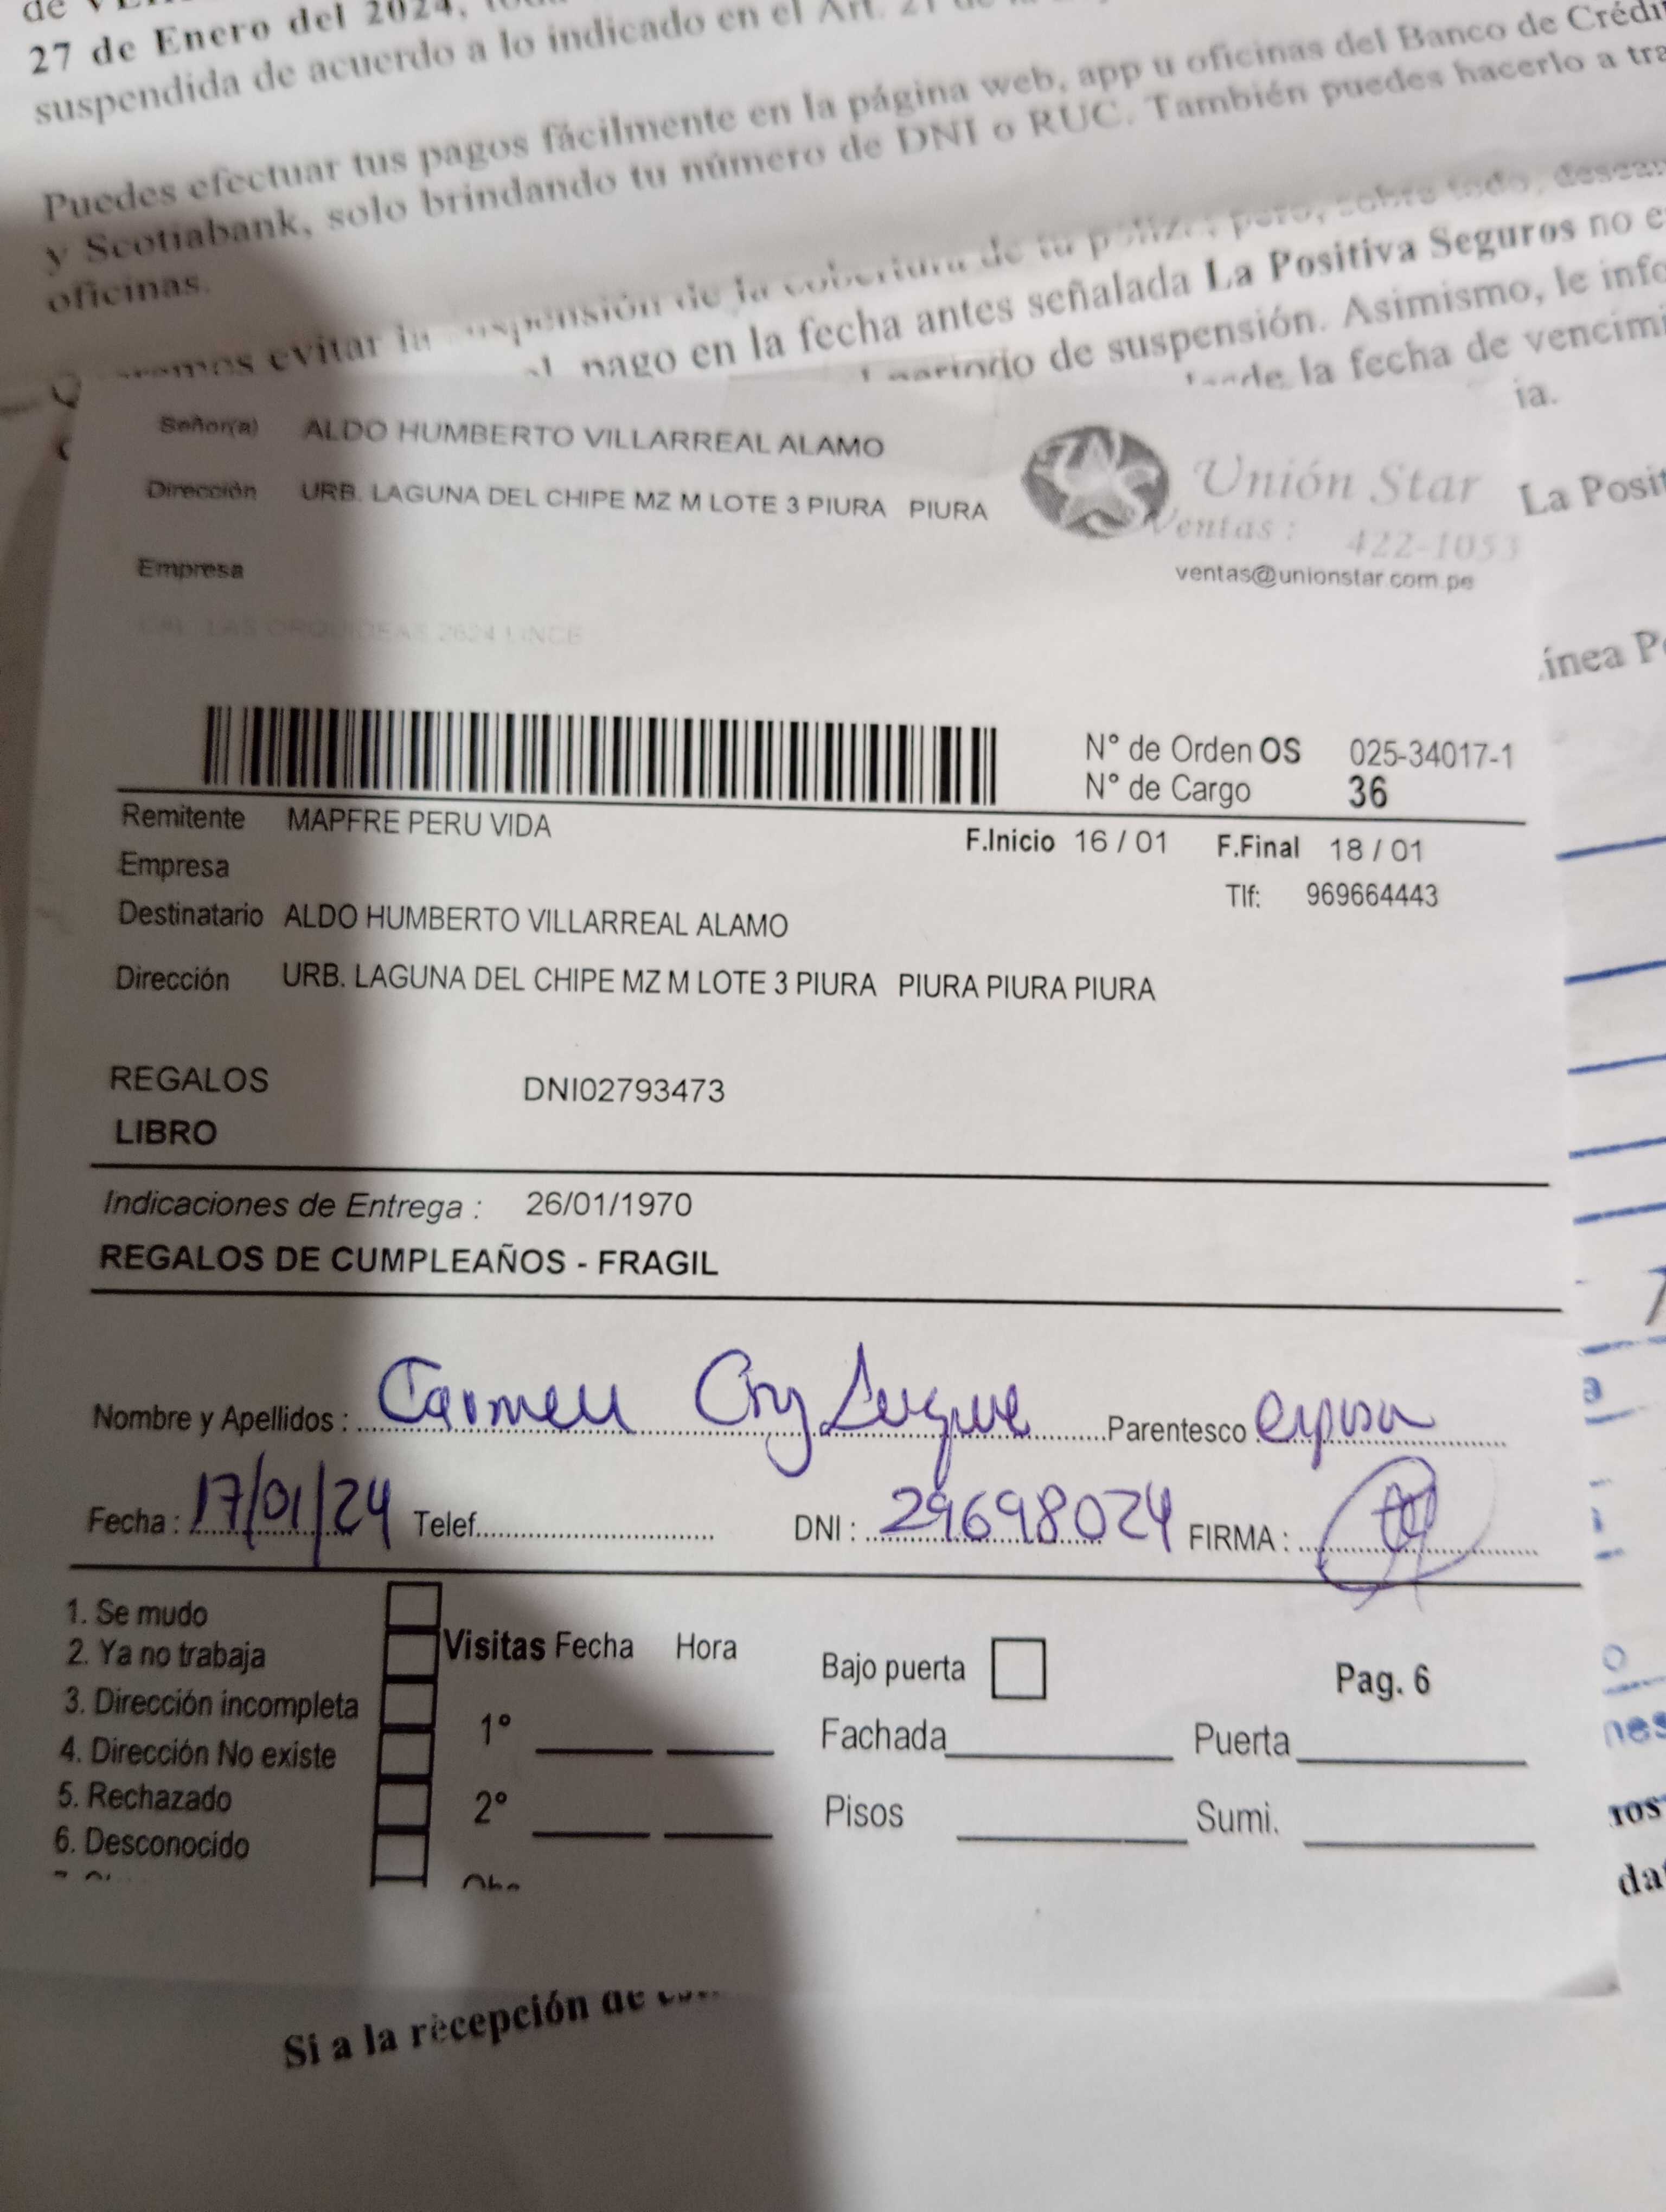 27 de Enero del 2024,
suspendida de acuerdo a lo indicado en el Art. 21 de
Puedes efectuar tus pagos fácilmente en la página web, app u oficinas del Banco de Crédi
y Scotiabank, solo brindando tu número de DNI o RUC. También puedes hacerlo a tra
oficinas.
evitar la suspensión de la cobertura de tu póliza; pero, sobre todo,
pago en la fecha antes señalada La Positiva Seguros no e
periodo de suspensión. Asimismo, le info
desde la fecha de vencimi
ia.
Señor(a) ALDO HUMBERTO VILLARREAL ALAMO
Dirección URB. LAGUNA DEL CHIPE MZ M LOTE 3 PIURA PIURA
Unión Star
Ventas : 422-1053
ventas@unionstar.com.pe
La Posit
Empresa
CAL. LAS ORQUIDEAS 2624 LINCE
ínea P
N° de Orden OS 025-34017-1
N° de Cargo 36
Remitente MAPFRE PERU VIDA
F.Inicio 16 / 01 F.Final 18 / 01
Empresa
Tlf: 969664443
Destinatario ALDO HUMBERTO VILLARREAL ALAMO
Dirección URB. LAGUNA DEL CHIPE MZ M LOTE 3 PIURA PIURA PIURA PIURA
REGALOS DNI02793473
LIBRO
Indicaciones de Entrega : 26/01/1970
REGALOS DE CUMPLEAÑOS - FRAGIL
Nombre y Apellidos : Carmen Luque Parentesco esposa
Fecha : 17/01/24 Telef. DNI : 29698024 FIRMA :
1. Se mudo
2. Ya no trabaja
3. Dirección incompleta
4. Dirección No existe
5. Rechazado
6. Desconocido
Visitas Fecha Hora
1°
2°
Bajo puerta
Pag. 6
Fachada Puerta
Pisos Sumi.
nes
ros
da
Si a la recepción de